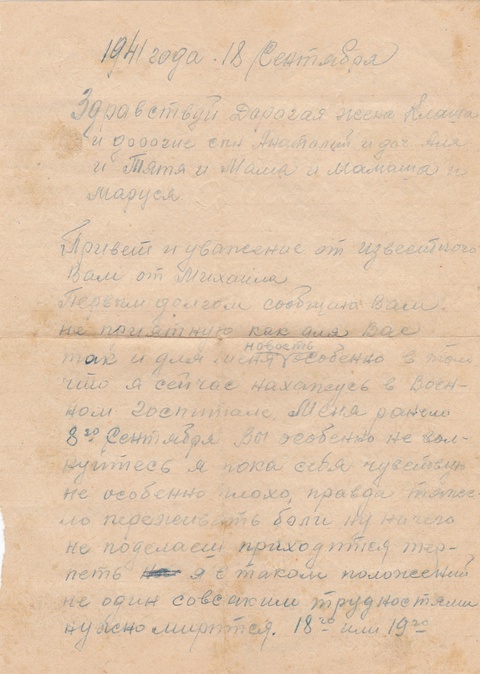 1941 года. 18 Сентября
Здравствуй Дарогая жена Клаша
и дорогие сын Анатолий и доч. Аля
и Тятя и Мама и мамаша и
Маруся
Привет и уважение от известного
Вам от Михаила
Первым долгом сообщаю Вам
не приятную как для Вас
новость
так и для меня особенно в том
что я сейчас нахажусь в Воен-
ном Госпитале Меня ранело
8го Сентября Вы особенно не вол-
нуйтесь я пока себя чувствую
не особенно плохо, правда тяже-
ло переживать боли ну ничего
не поделаеш приходится тер-
петь я с таком положении
не один совсаким трудностями
нужно мирится. 18го или 19го